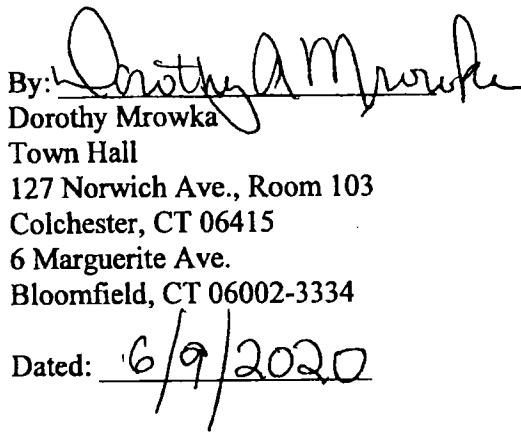 By: Dorothy A Mrowka
Dorothy Mrowka
Town Hall
127 Norwich Ave., Room 103
Colchester, CT 06415
6 Marguerite Ave.
Bloomfield, CT 06002-3334
Dated: 6/9/2020